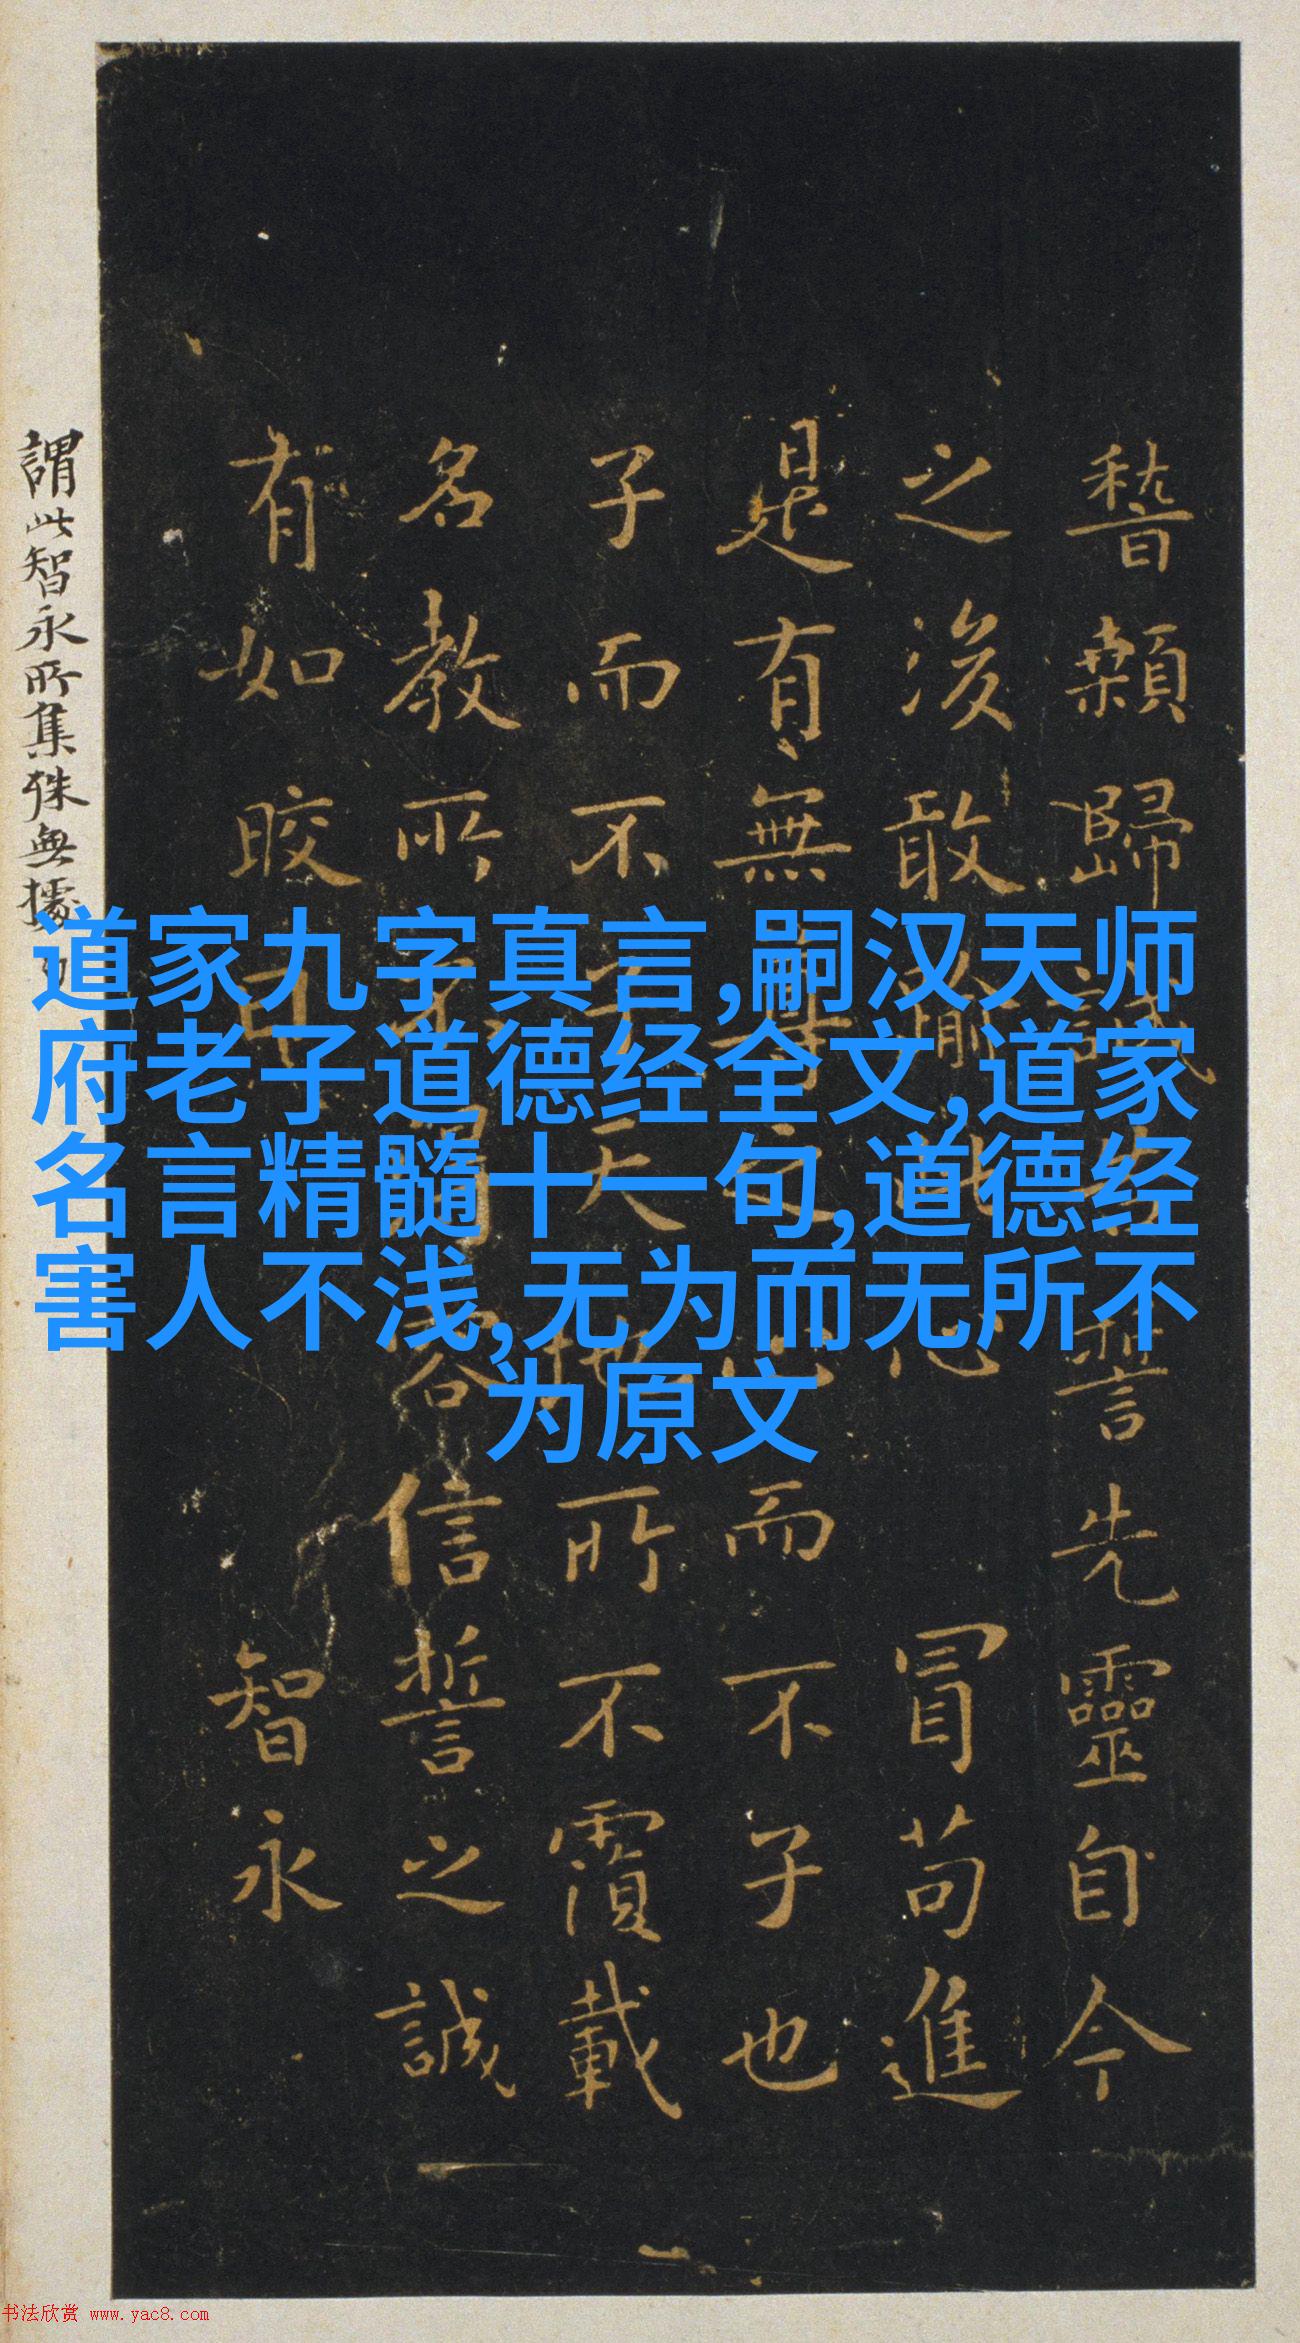 稽顙歸誠 誓先靈自今
之後敢 此心 冒苟進
是有無尊之心而不子也
子而不子天地所不覆載
名教所不 容信誓之誠
有如皎日 智永
謂此智永所集殊無據
道家九字真言,嗣汉天师
府老子道德经全文,道家
名言精髓十一句,道德经
害人不浅,无为而无所不
为原文
书法欣赏 www.yac8.com